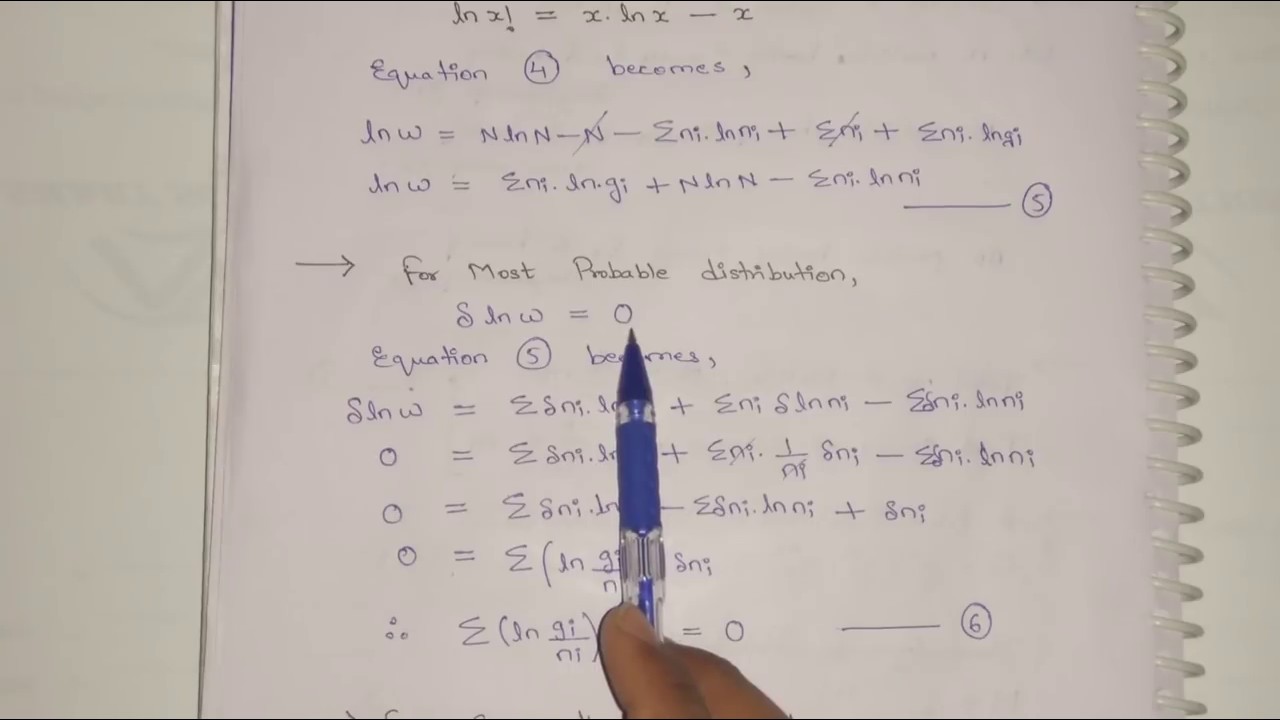 ln x! = x. ln x – x
Equation ④ becomes,
ln ω = N ln N – N – Σni. ln ni + Σni + Σni. ln gi
ln ω = Σni. ln. gi + N ln N – Σni. ln ni —— ⑤
→ For Most Probable distribution,
δ ln ω = 0
Equation ⑤ becomes,
δ ln ω = Σ δni. ln + Σni δ ln ni – Σδni. ln ni
0 = Σ δni. ln + Σni. 1/ni δni – Σδni. ln ni
0 = Σ δni. ln – Σδni. ln ni + δni
0 = Σ (ln gi/n δni
∴ Σ (ln gi/ni) = 0 —— ⑥